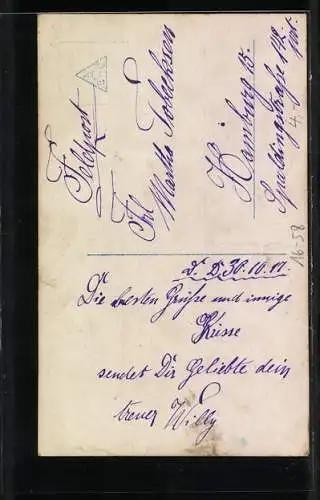 Feldpost
Frl
Martha
Hamburg 15.
Spaldingstraße 142
4.
16-58
d. 30.10.17.
Die besten Grüße und innige
Küsse
sendet Dir Geliebte dein
treuer Willy